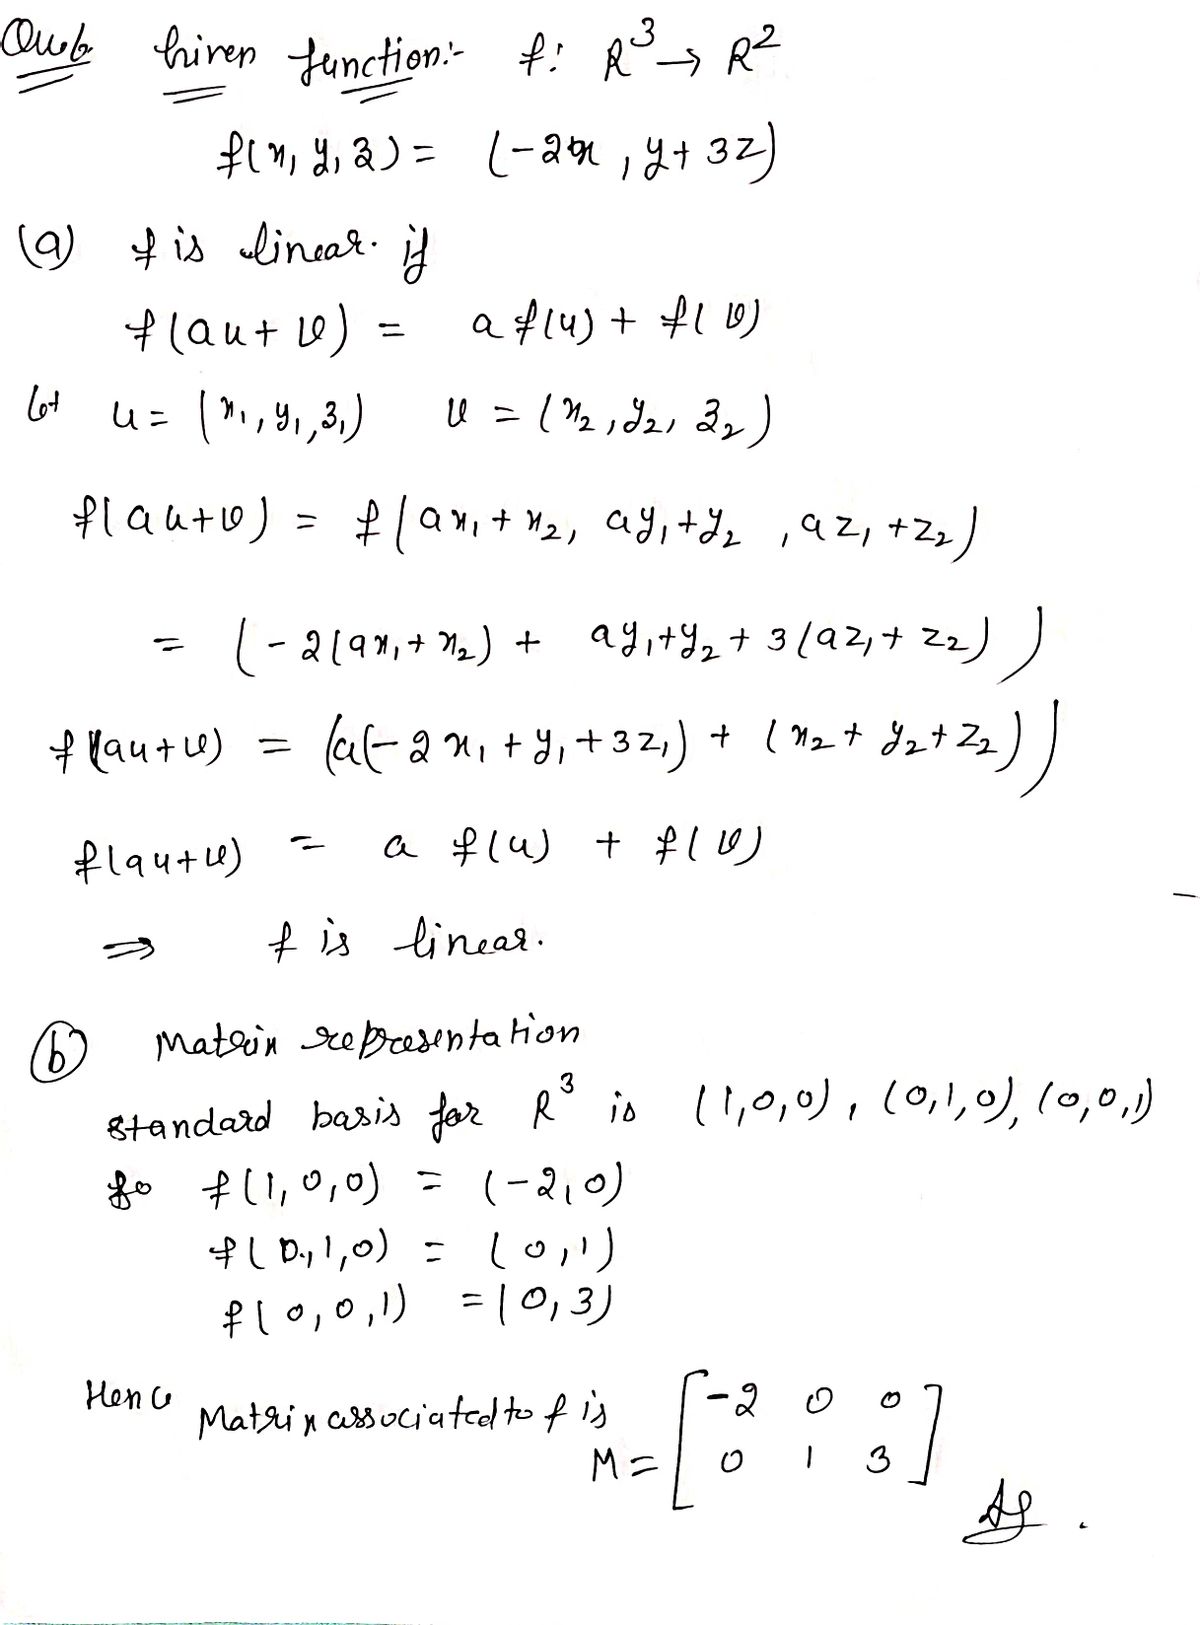 Que6. Given function:- f: R³ → R²
f(x, y, z) = (-2x, y + 3z)
(a) f is linear. if
f(au + v) = a f(u) + f(v)
let u = (x₁, y₁, z₁) v = (x₂, y₂, z₂)
f(au+v) = f(ax₁ + x₂, ay₁+y₂, az₁ +z₂)
= (-2(ax₁ + x₂) + ay₁+y₂ + 3(az₁ + z₂))
f(au+v) = (a(-2x₁ + y₁ + 3z₁) + (x₂ + y₂+z₂))
f(au+v) = a f(u) + f(v)
⇒ f is linear.
(b) Matrix representation
standard basis for R³ is (1,0,0), (0,1,0), (0,0,1)
So f(1,0,0) = (-2,0)
f(0,1,0) = (0,1)
f(0,0,1) = (0,3)
Hence Matrix associated to f is
M = [-2 0 0
0 1 3]